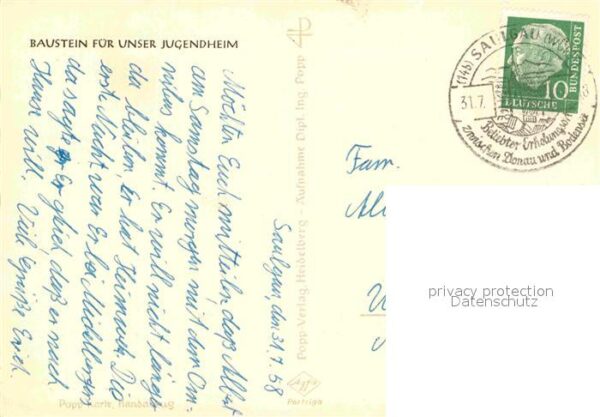 BAUSTEIN FÜR UNSER JUGENDHEIM
Saulgau, den 31.7.58
Möchten Euch mitteilen, daß Albert
am Samstag morgen mit dem Om-
nibus kommt. Er will nicht länger
da bleiben, Er hat Heimweh. Die
erste Nacht war Er bei
da sagte Er gleich, daß er nach
Hause will. Viele Grüße Erich.
Popp-Verlag, Heidelberg - Aufnahme Dipl. Ing. Popp
Popp-Karte, Handabzug
Agfa
Portriga
Fam.
(14b) SAULGAU
31.7.
Beliebter Erholungsort
zwischen Donau und Bodensee
10
DEUTSCHE
BUNDESPOST
privacy protection
Datenschutz